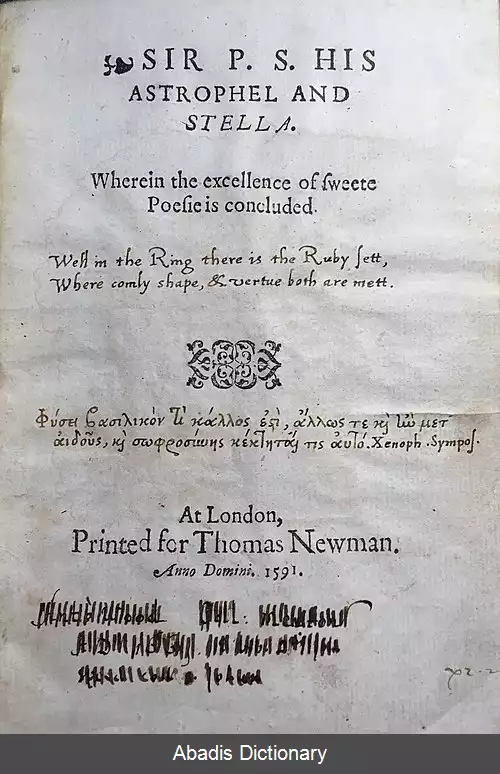 SIR P. S. HIS
ASTROPHEL AND
STELLA.
Wherein the excellence of ſweete
Poeſie is concluded.
Well in the Ring there is the Ruby ſett,
Where comly shape, & vertue both are mett.
Φύσει βασιλικὸν τὶ κάλλος ἐςὶ, ἄλλως τε κ̀ ἰὼ μετ
αἰδοῦς, κ̀ σωφροσύνης κέκτηταί τις αὐτό. Xenoph. Sympoſ.
At London,
Printed for Thomas Newman.
Anno Domini. 1591.
Abadis Dictionary